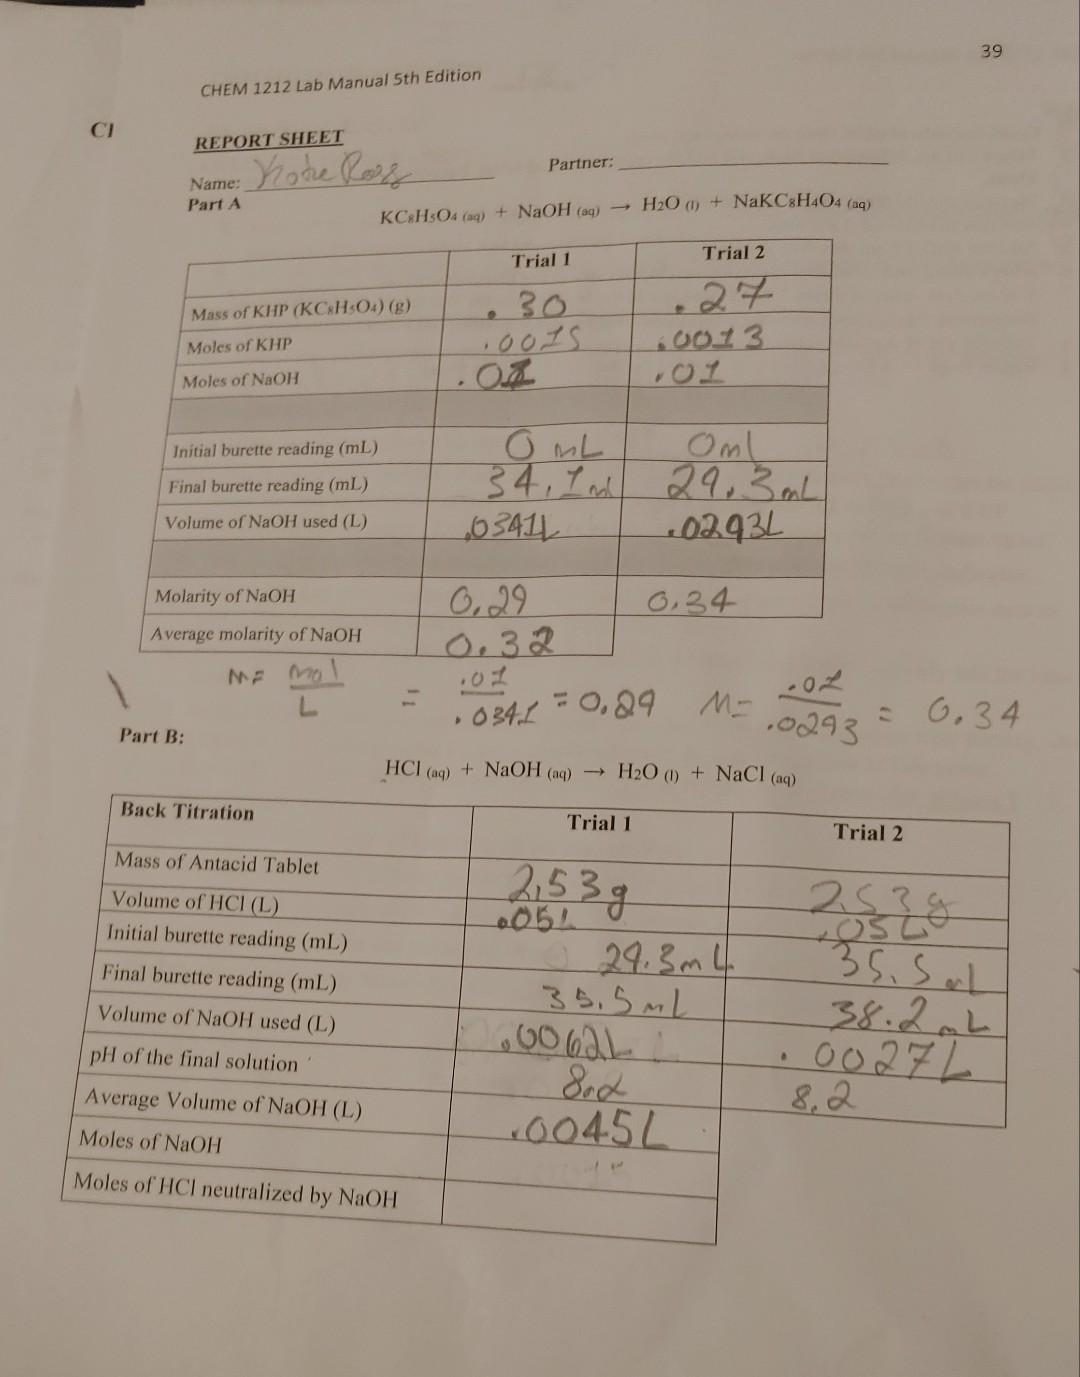 39
CHEM 1212 Lab Manual 5th Edition
C1
REPORT SHEET
Name: Partner:
Part A
KC8H5O4 (aq) + NaOH (aq) → H2O (l) + NaKC8H4O4 (aq)
Trial 1 Trial 2
Mass of KHP (KC8H5O4) (g) .30 .27
Moles of KHP .0015 .0013
Moles of NaOH .01 .01
Initial burette reading (mL) 0 mL 0ml
Final burette reading (mL) 34.1ml 29.3mL
Volume of NaOH used (L) .0341L .0293L
Molarity of NaOH 0.29 0.34
Average molarity of NaOH 0.32
M = mol / L = .01 / .0341 = 0.29 M = .01 / .0293 = 0.34
Part B:
HCl (aq) + NaOH (aq) → H2O (l) + NaCl (aq)
Back Titration Trial 1 Trial 2
Mass of Antacid Tablet 2.53g 2.53g
Volume of HCl (L) .05L .05L
Initial burette reading (mL) 29.3mL 35.5mL
Final burette reading (mL) 35.5mL 38.2mL
Volume of NaOH used (L) .0062L .0027L
pH of the final solution 8.2 8.2
Average Volume of NaOH (L) .0045L
Moles of NaOH
Moles of HCl neutralized by NaOH